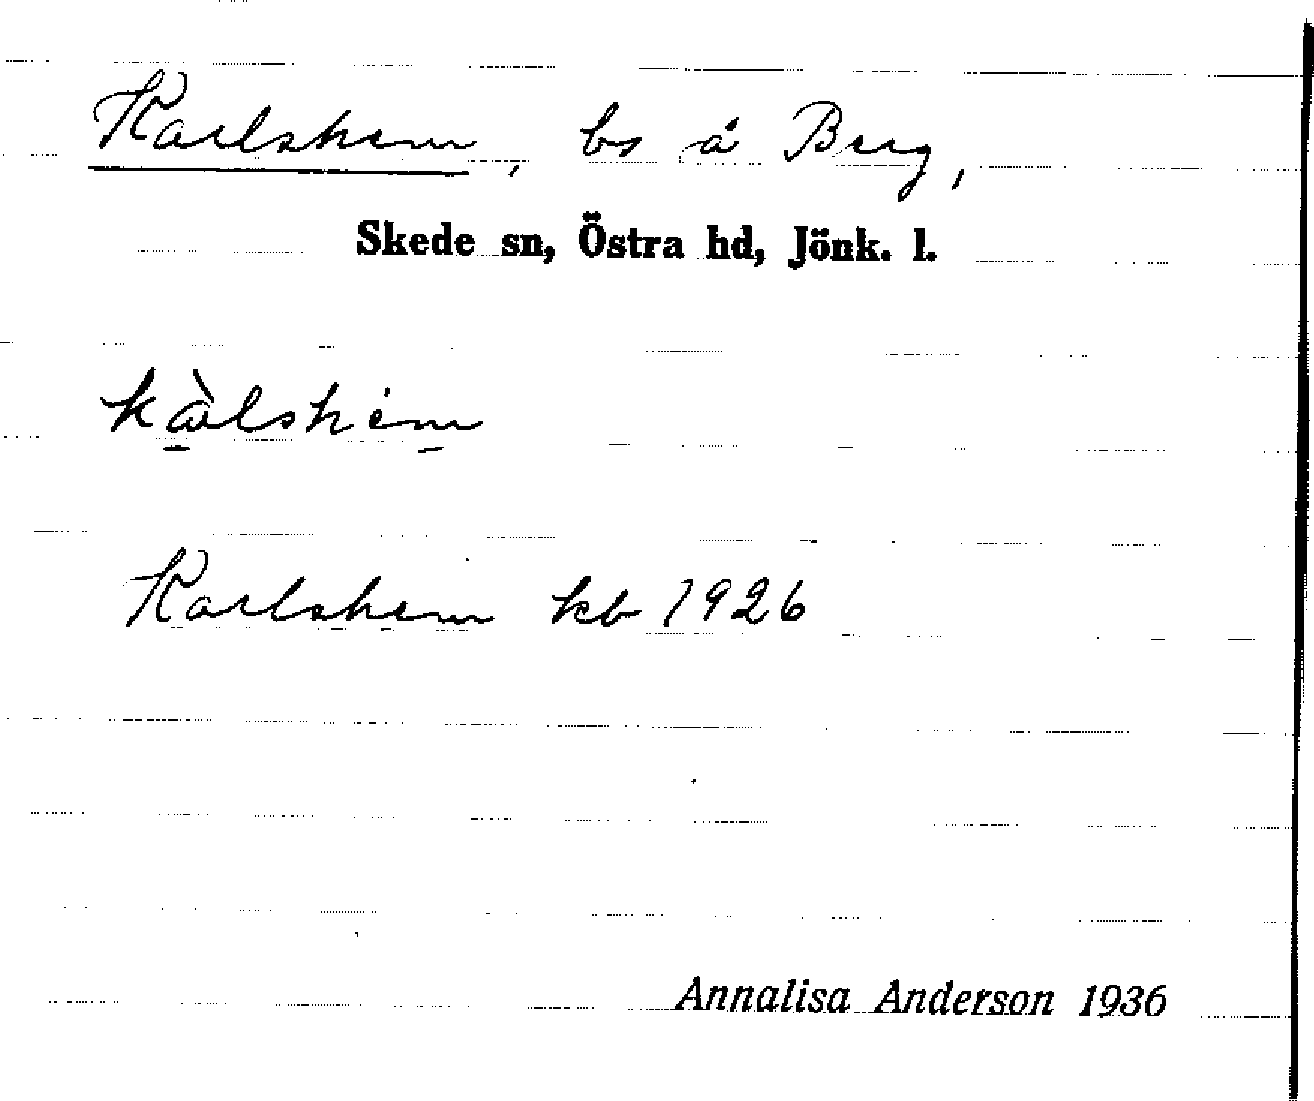 Karlshem, bs å Berg,
Skede sn, Östra hd, Jönk. l.
kàlshém
Karlshem kb 1926
Annalisa Anderson 1936